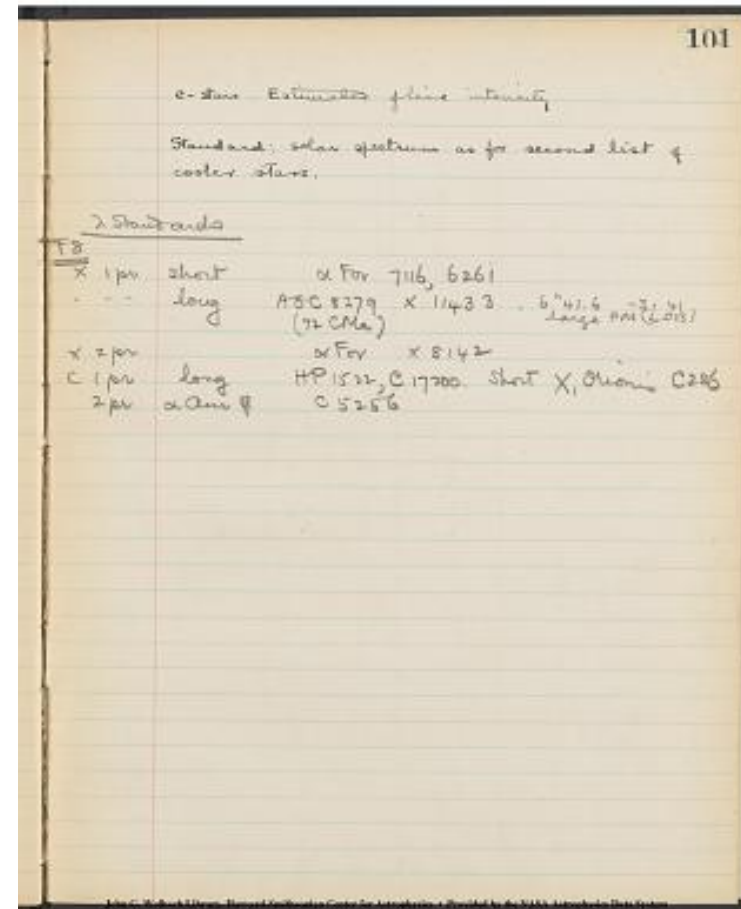 101
c-stars Estimates of line intensity
Standard: solar spectrum as for second list of
cooler stars.
λ Standards
F8
X 1 pr short α For 7116, 6261
. - - long AGC 8279 X 11433 . 6 h 47.6 -31 41
(72 CMa) large
X 2 pr α For X 8142
C 1 pr long HP 1522, C 17200. Short χ, Orionis C286
2 pr α Aur C 5256
John G. Wolbach Library, Harvard-Smithsonian Center for Astrophysics • Provided by the NASA Astrophysics Data System